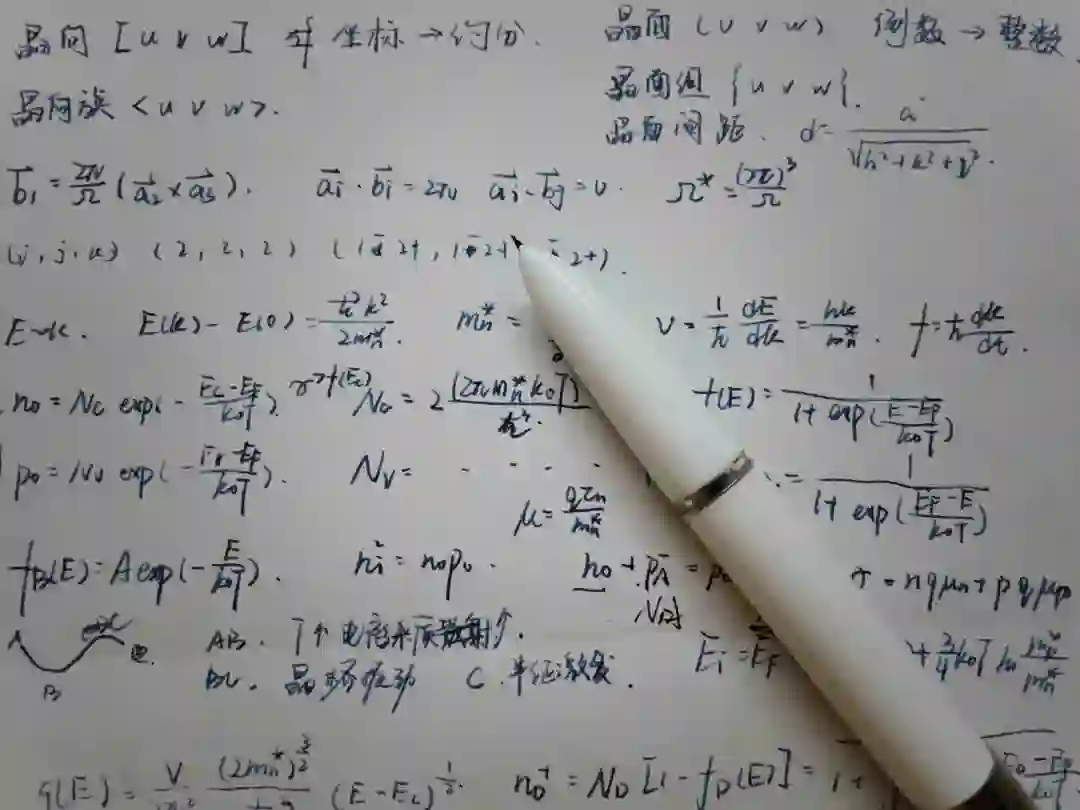 晶向 [u v w] 坐标→约分. 晶面 (u v w) 倒数→整数
晶向族 <u v w>. 晶面组 {u v w}.
晶面间距. d = a / √(h²+k²+l²).
b₁ = 2π/Ω (a₂ × a₃). aᵢ · bᵢ = 2π aᵢ · bⱼ = 0. Ω* = (2π)³/Ω
(2, 2, 2)
E~k. E(k) - E(0) = ħ²k²/2mn*. mn* = v = 1/ħ dE/dk = ħk/mn*. f = ħ dk/dt.
n₀ = Nc exp(- (Ec-EF)/k₀T). Nc = 2 (2πmn*k₀T) f(E) = 1 / (1 + exp((E-EF)/k₀T))
p₀ = Nv exp(- /k₀T). Nv = - - - - = 1 / (1 + exp((EF-E)/k₀T))
μ = qτn/mn*
fB(E) = A exp(- E/k₀T). nᵢ² = n₀p₀. n₀ + pA⁻ = p₀ = nqμn + pqμp
A B AB. 电离杂质散射. Ei = EF + 3/4 k₀T ln mp*/mn*
BC. 晶格振动 C 本征激发.
g(E) = V (2mn*)^3/2 (E-Ec)^1/2. nD⁺ = ND [1 - fD(E)] =